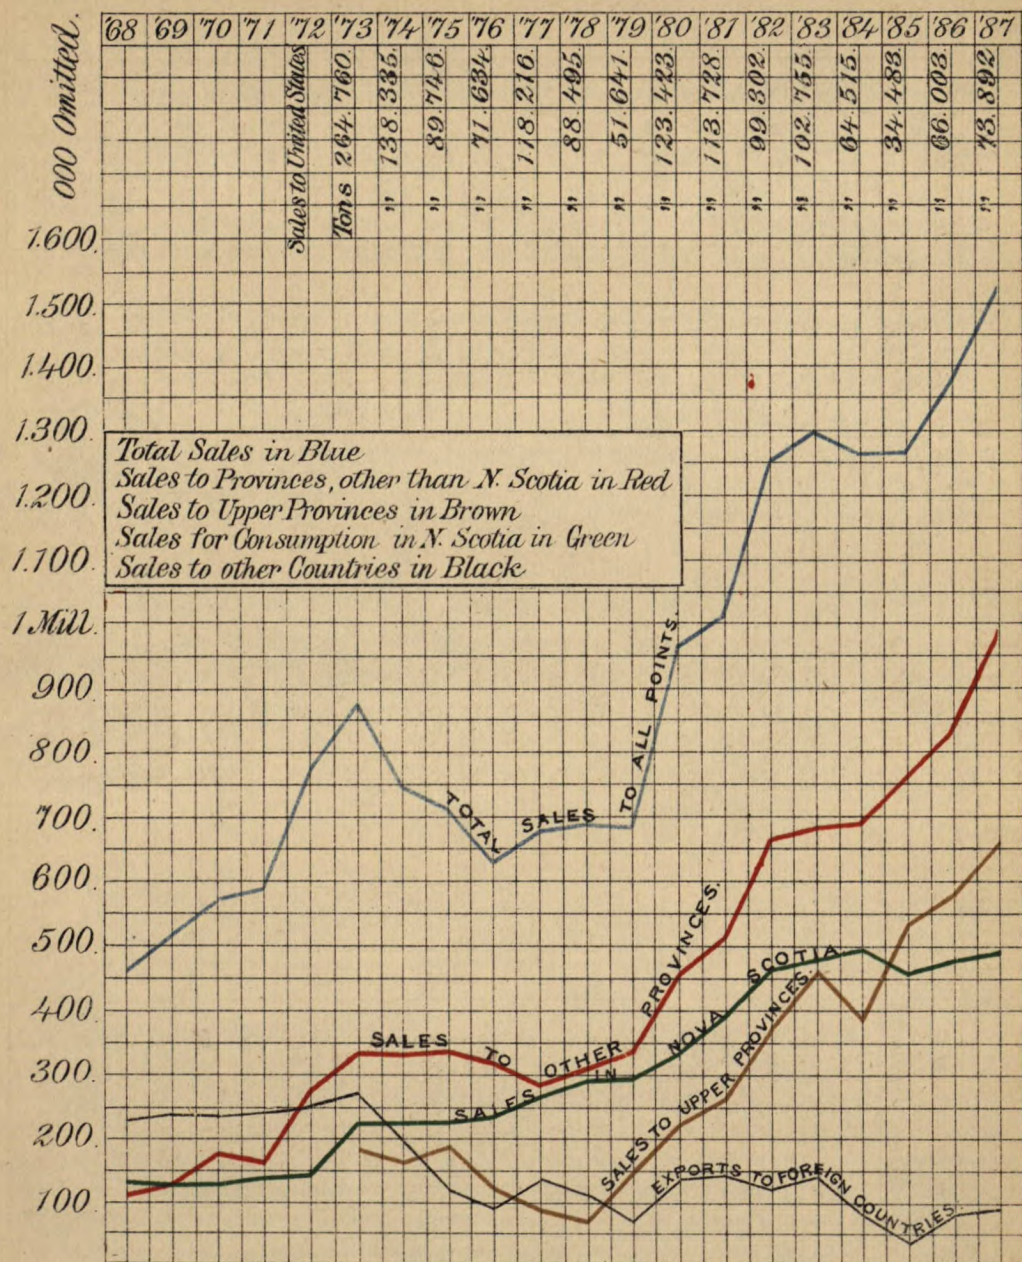 '68 '69 '70 '71 '72 '73 '74 '75 '76 '77 '78 '79 '80 '81 '82 '83 '84 '85 '86 '87
000 Omitted.
Sales to United States
Tons 264.760.
„ 138.335.
„ 89.746.
„ 71.634.
„ 118.216.
„ 88.495.
„ 51.641.
„ 123.423.
„ 113.728.
„ 99.302.
„ 102.755.
„ 64.515.
„ 34.483.
„ 66.003.
„ 73.892
1.600.
1.500.
1.400.
1.300.
1.200.
1.100.
1 Mill.
900.
800.
700.
600.
500.
400.
300.
200.
100.
Total Sales in Blue
Sales to Provinces, other than N. Scotia in Red
Sales to Upper Provinces in Brown
Sales for Consumption in N. Scotia in Green
Sales to other Countries in Black
TOTAL SALES TO ALL POINTS.
SALES TO OTHER PROVINCES.
SALES IN NOVA SCOTIA
SALES TO UPPER PROVINCES.
EXPORTS TO FOREIGN COUNTRIES.